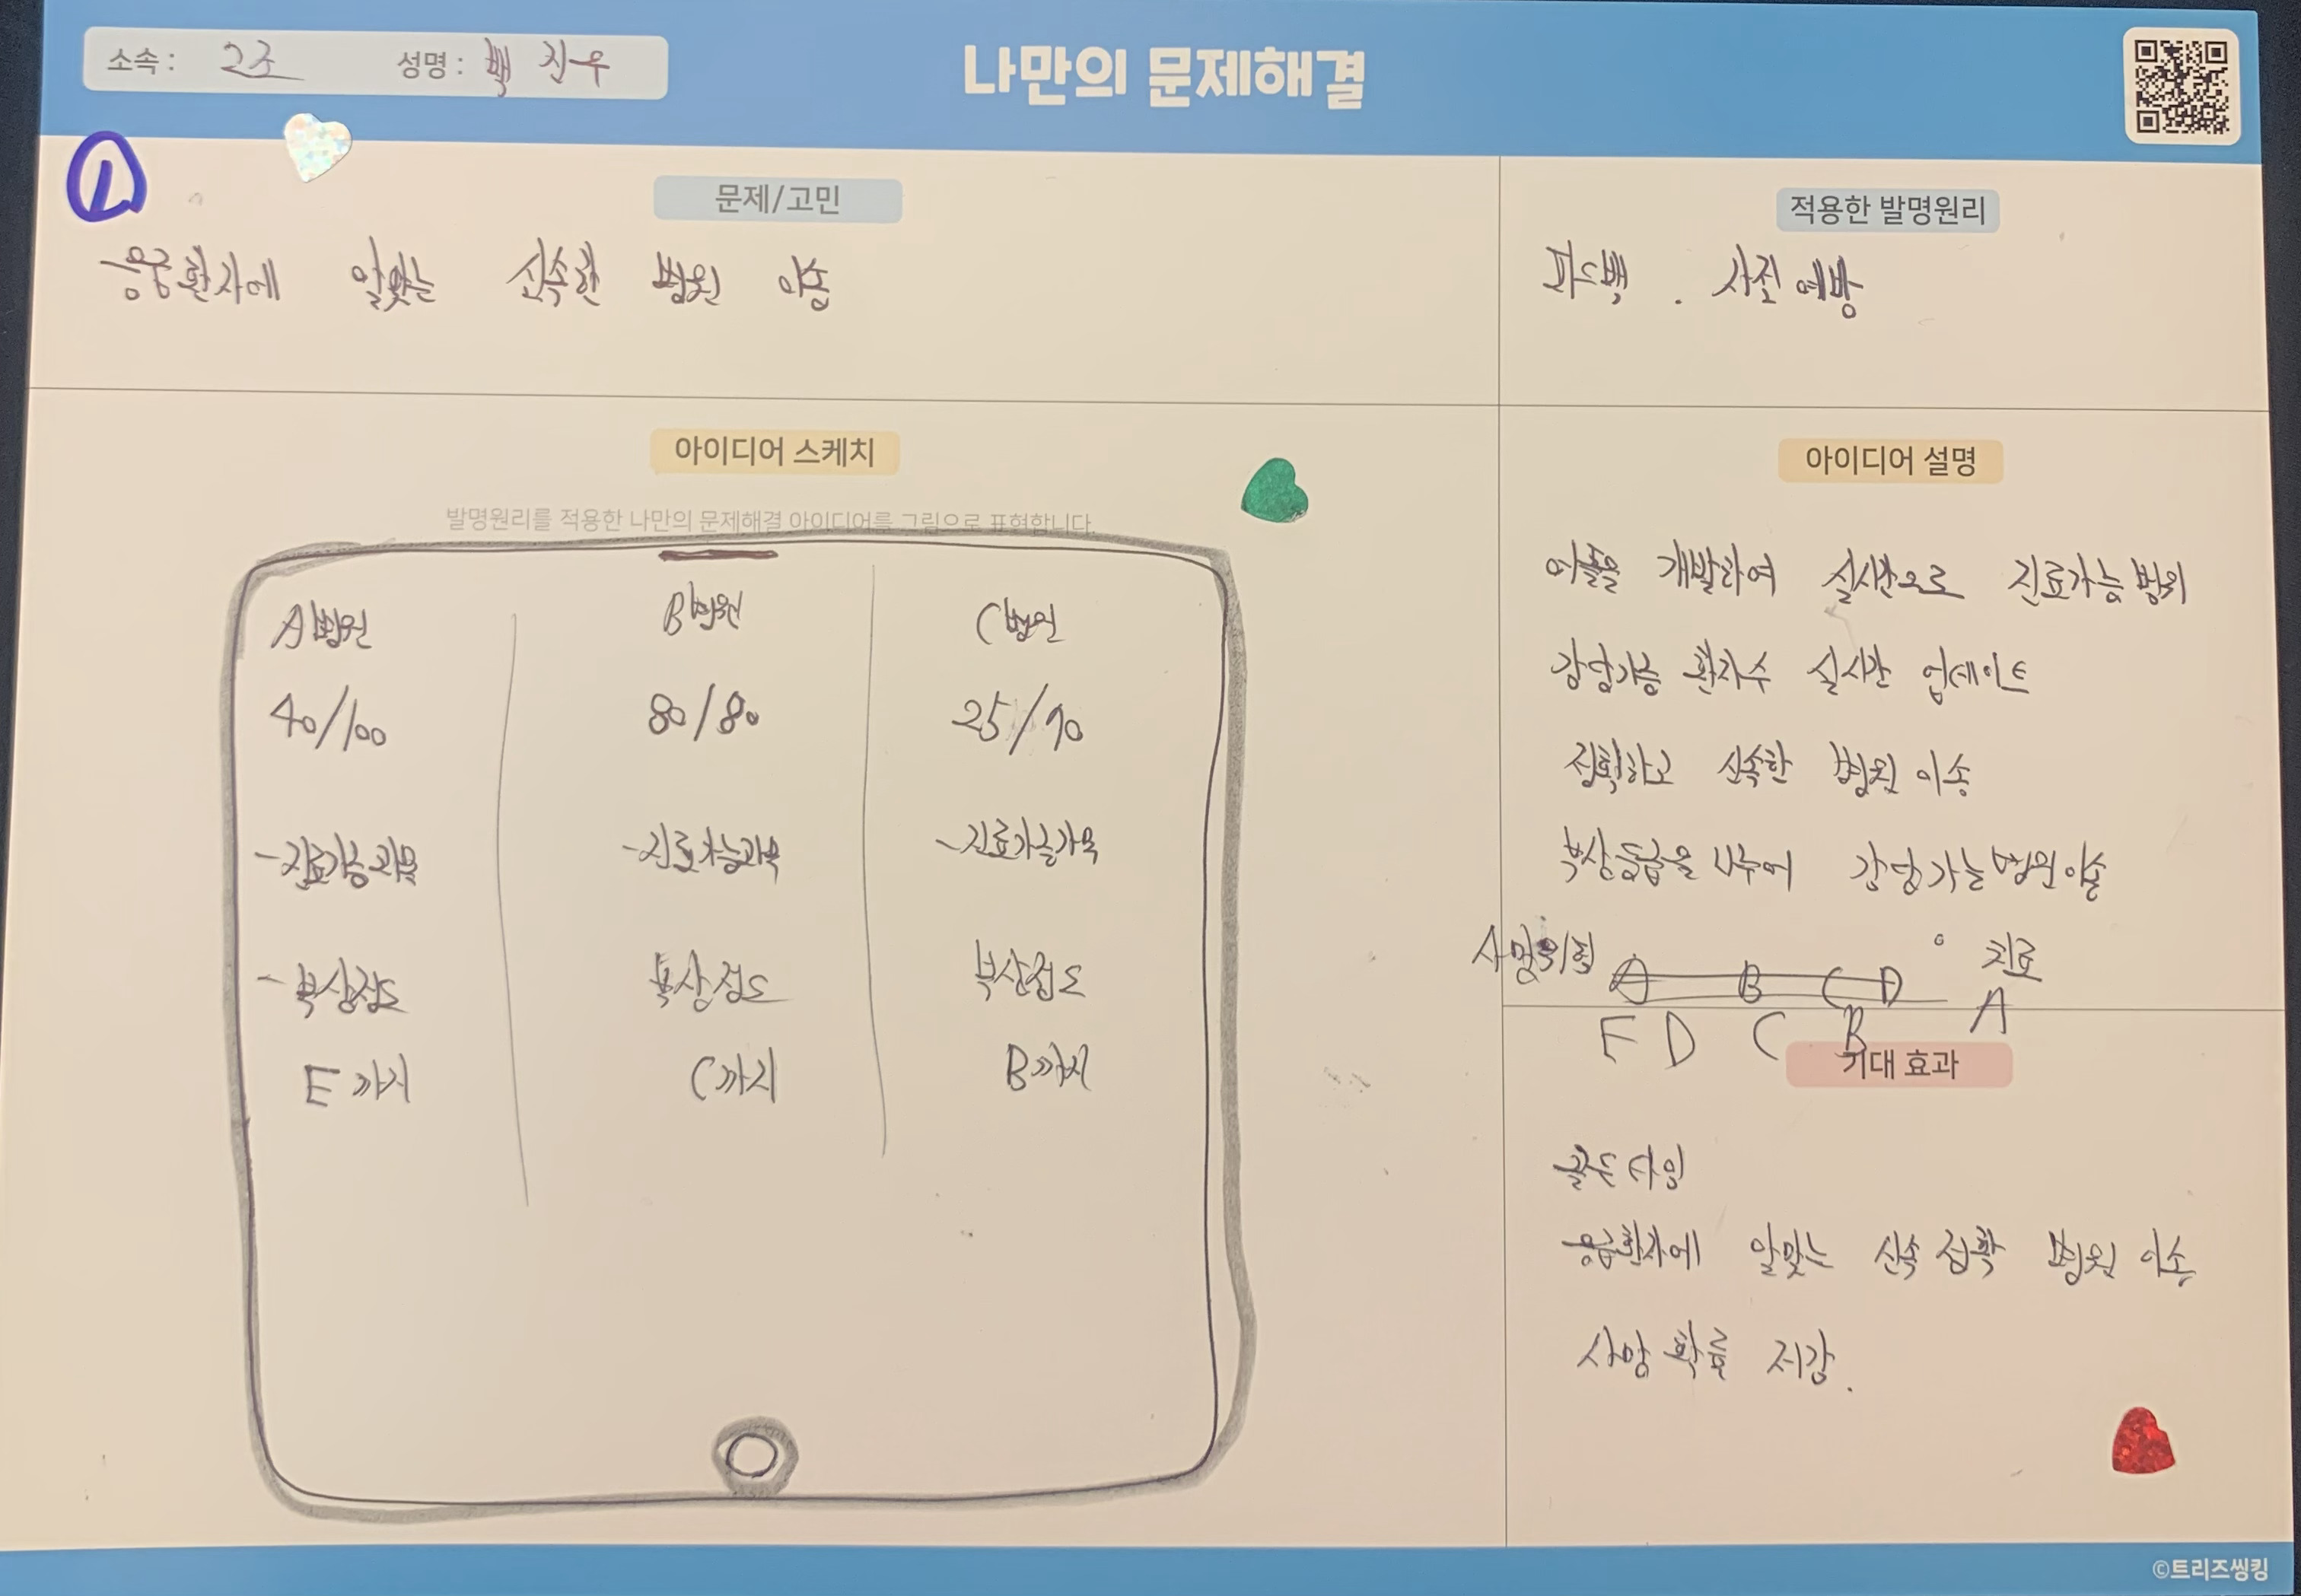 소속 : 2조 성명 : 백 진우
나만의 문제해결
1
문제/고민
응급환자에 알맞는 신속한 병원 이송
적용한 발명원리
피드백 . 사전예방
아이디어 스케치
발명원리를 적용한 나만의 문제해결 아이디어를 그림으로 표현합니다.
A병원 B병원 C병원
40/100 80/80 25/90
-진료가능과목 -진료가능과목 -진료가능과목
-부상정도 부상정도 부상정도
E까지 C까지 B까지
아이디어 설명
어플을 개발하여 실시간으로 진료가능범위
감당가능 환자수 실시간 업데이트
정확하고 신속한 병원 이송
부상등급을 나누어 감당가능병원이송
사망위험 A B C D 치료
F D C B A
기대 효과
골든타임
응급환자에 알맞는 신속 정확 병원 이송
사망 확률 저감.
©트리즈씽킹